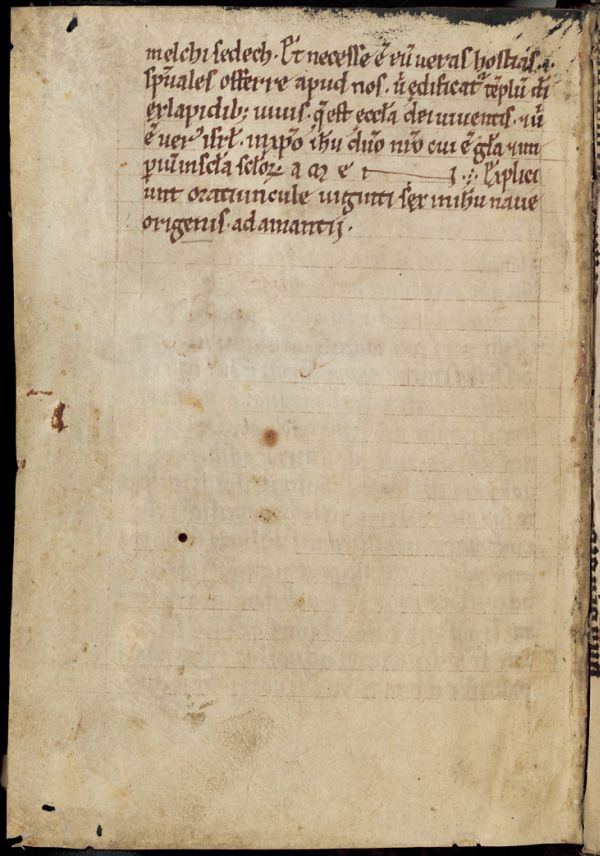 melchisedech. Et necesse ē eū ueras hostias.
sp̄uales offerre apud nos. ū edificat᷑ tēplū di̅
ex lapidib; uiuis. q̄ est eccl̄a dei uiuentis. ⁊ ū
ē uer᷒ isrl̄. in xp̄o ih̄u d̄no nr̄o cui ē gl̄a ⁊ im
piū in scl̄a scl̄oꝝ a m e n. Explici
unt oratiuncule uiginti sex in ih̄u naue
origenis. adamantij.